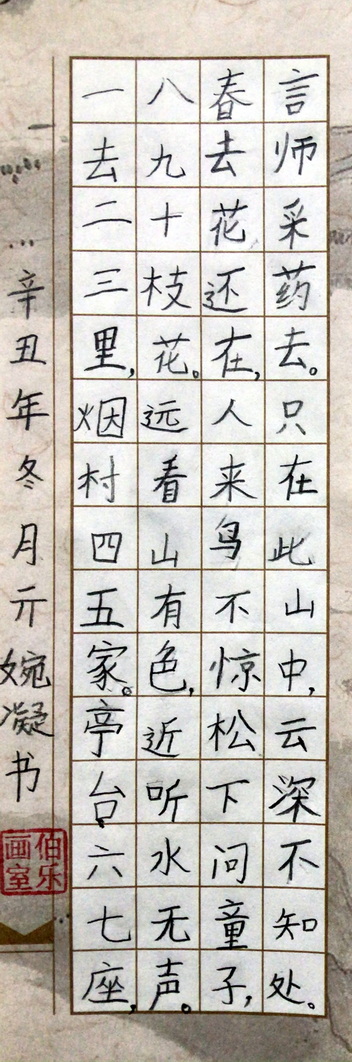 一去二三里,烟村四五家。亭台六七座,
八九十枝花。远看山有色,近听水无声。
春去花还在,人来鸟不惊松下问童子,
言师采药去。只在此山中,云深不知处。
辛丑年冬月亓婉凝书
伯乐
画室